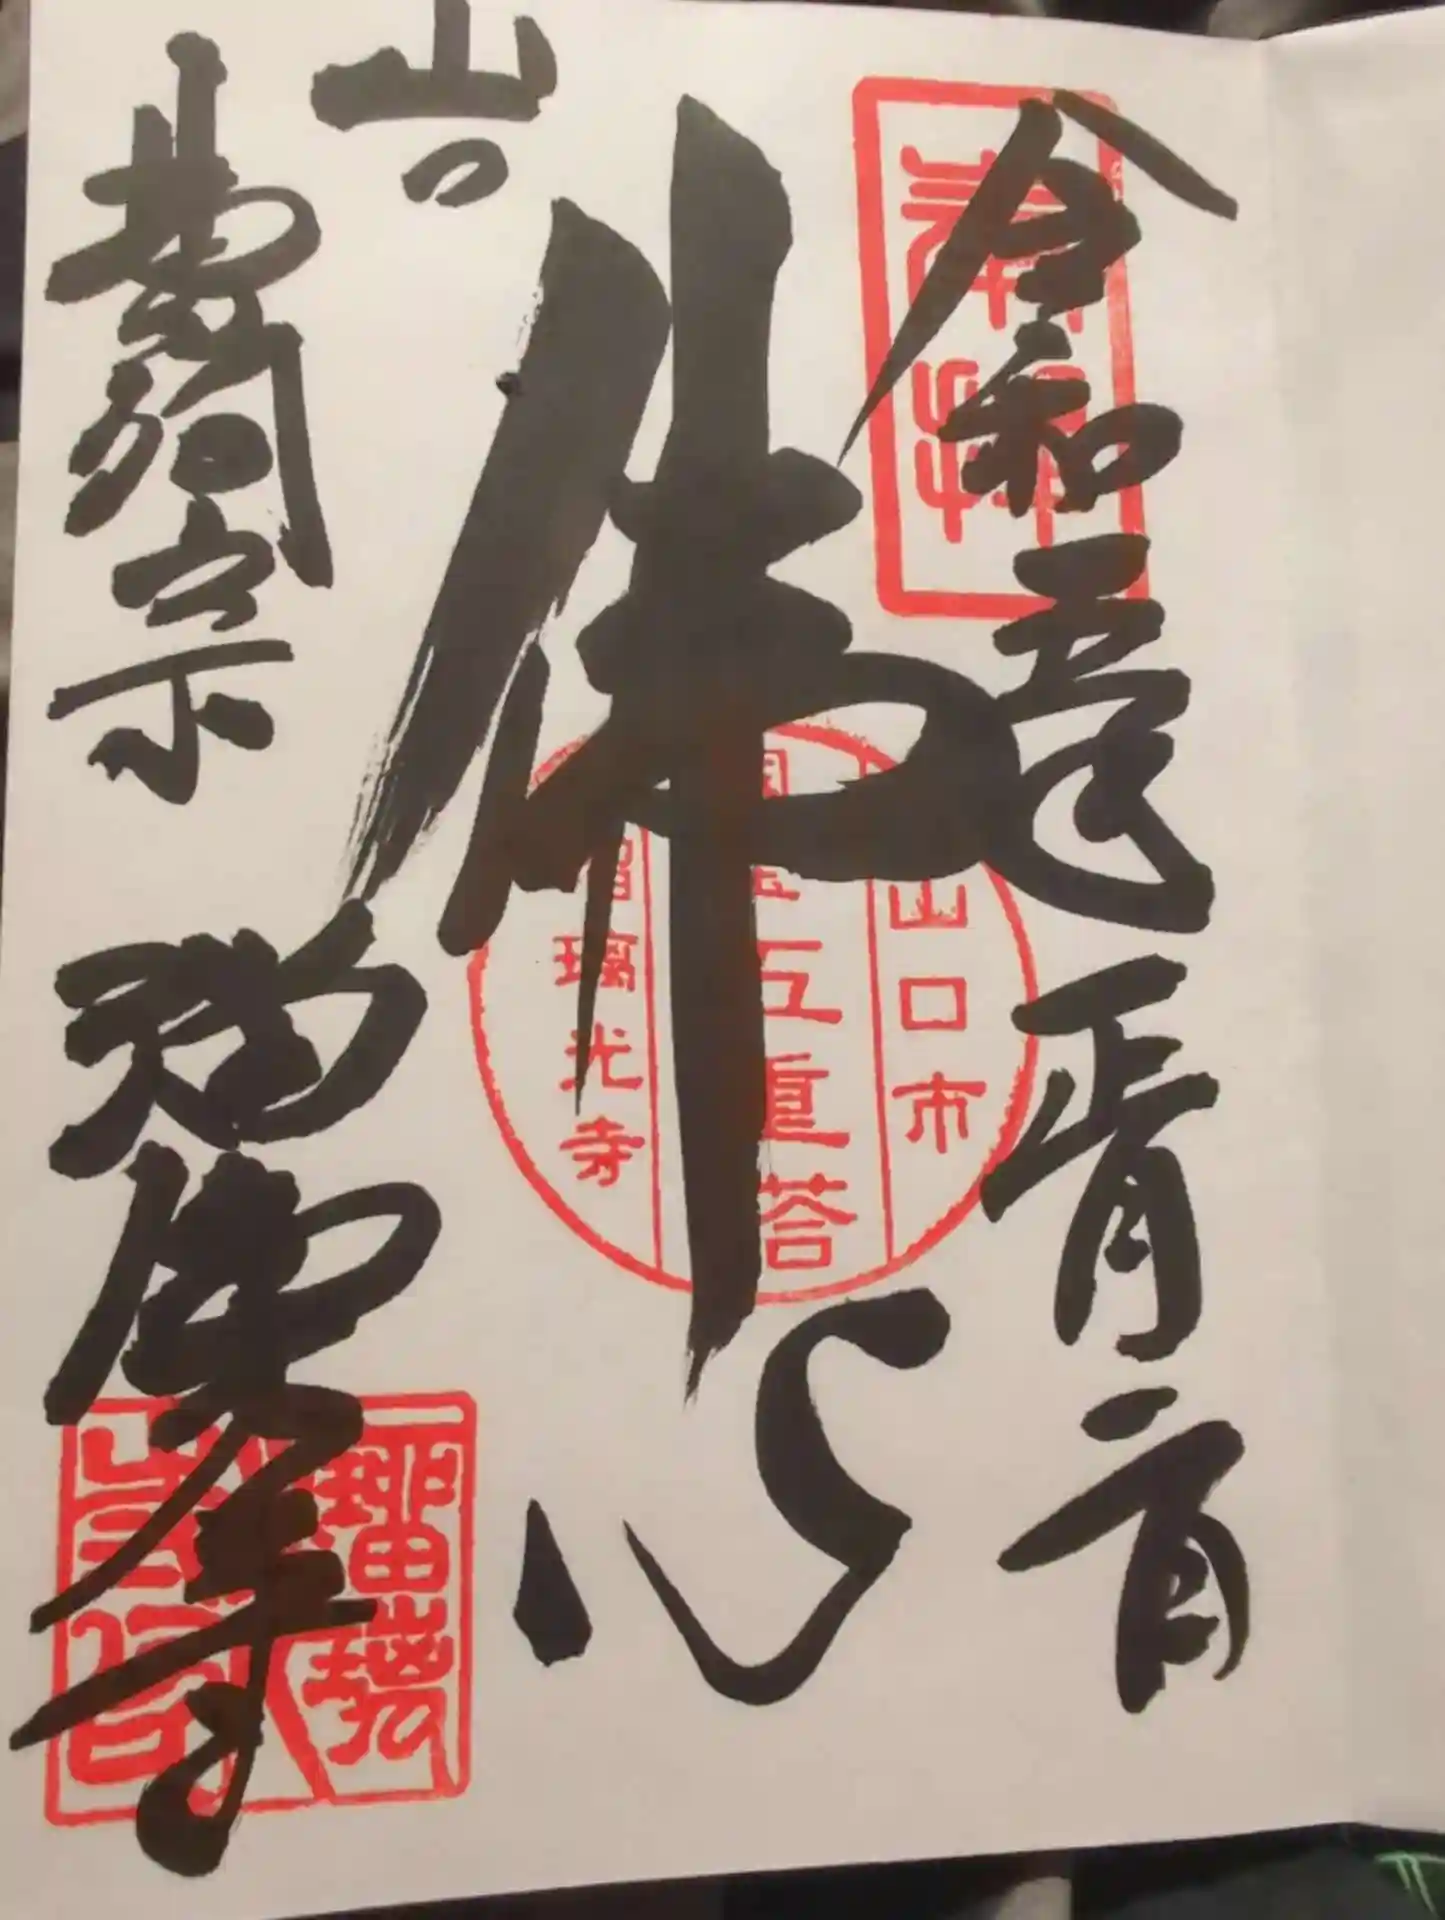 奉拝
令和五年
佛心
山口市
国宝五重塔
瑠璃光寺
山口
曹洞宗 瑠璃光寺
瑠璃